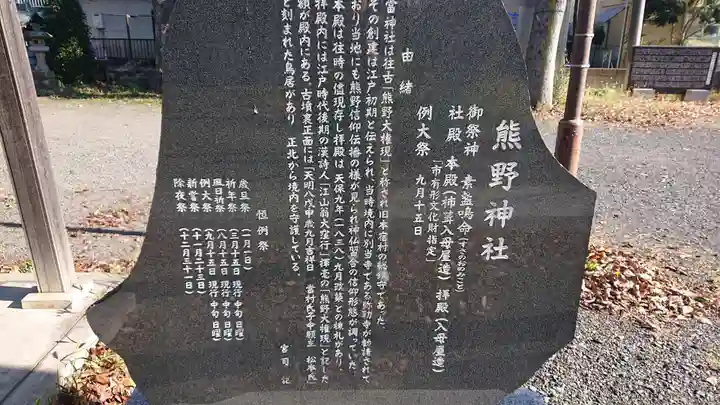 熊野神社
御祭神 素盞嗚命(すさのおのみこと)
社殿 本殿(杮葺入母屋造) 拝殿(入母屋造)
「市有形文化財指定」
例大祭 九月十五日
由緒
當神社は往古「熊野大権現」と称され旧本宿村の鎮守であった。
その創建は江戸初期と伝えられ、当時境内に別当寺である弥勒寺が勧請されて
おり当地にも熊野信仰伝播の様が見られ神仏習合の信仰形態が調っていた。
本殿は往時の儘現存し拝殿は天保九年(一八三八)九月改築との棟札があり、
拝殿内には江戸時代後期の漢詩人「江山翁大窪行」揮毫の「熊野大権現」と記した
額が殿内にある。古墳裏正面には「天明八戊申歳九月吉祥日 當村氏子中願主 松本氏」
と刻まれた鳥居があり 正北から境内を守護している。
宮司 記
恒例祭
歳旦祭 (一月一日)
祈年祭 (三月十五日 現行 中旬 日曜)
風日祈祭 (八月十五日 現行 中旬 日曜)
例大祭 (九月十五日 現行 中旬 日曜)
新嘗祭 (十一月二十三日)
除夜祭 (十二月三十一日)